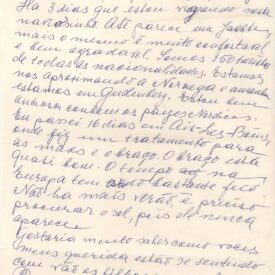 Há 3 dias que estou viajando neste
até parece um Yacht,
mais o mesmo é muito confortavel
e bem agradavel. Somos 150 turistas
de todas as nacionalidades. Estamos
nos aproximando a Noruega e amanhã
estamos em Gudenberg. Estou bem
os paizes Nordicos.
Eu passei 16 dias em Aix-les-Bains,
onde fiz um tratamento para
as mãos e o braço. O braço esta
quasi bom. O tempo na
Europa tem bastante frio.
Não ha mais verão, é preciso
procurar o sol, pois ele nunca
aparece.
Gostaria muito saber como vocês
meus querida estão se sentindo
com